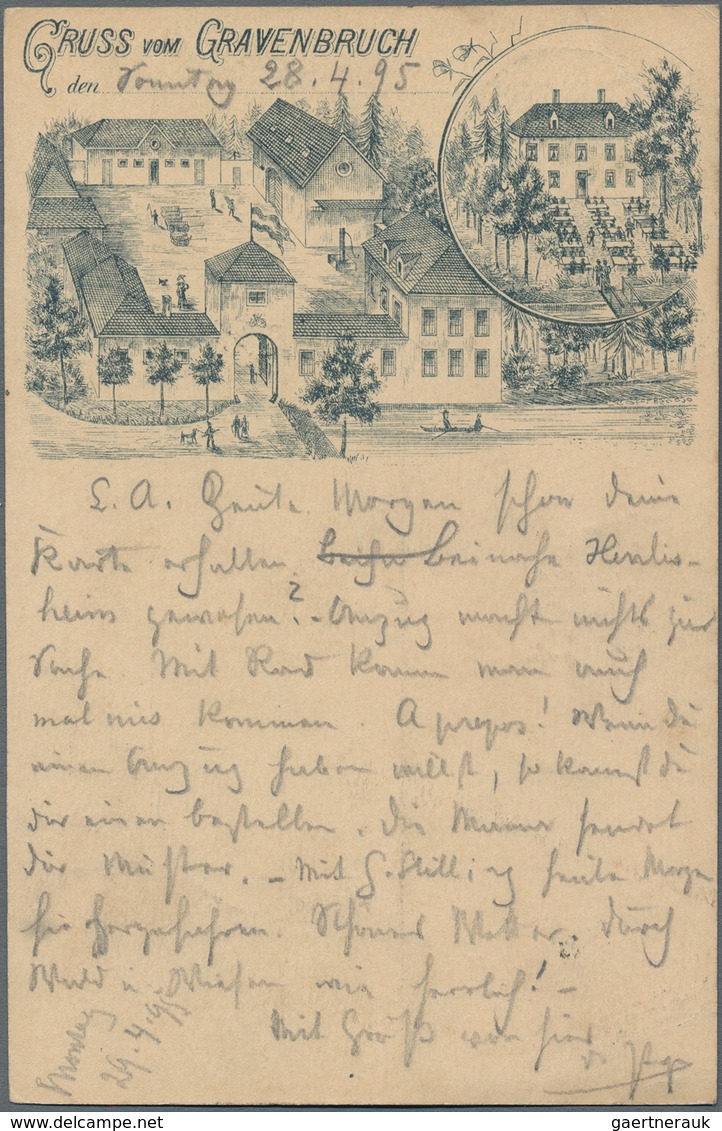 GRUSS VOM GRAVENBRUCH
den Sonntag 28.4.95
L. A. Heute Morgen schon deine
Karte erhalten. Beinahe Herlis-
heim gewesen? - Anzug macht nichts zur
Sache. Mit Rad kann man auch
mal kommen. A propos! Wenn du
einen Anzug haben willst, so kannst du
dir einen bestellen. Die Mama sendet
dir Muster. - Mit G. Stilling heute Morgen
hierhergefahren. Schönes Wetter. Durch
Wald u. Wiesen wie herrlich! -
Mit Gruß von hier
Montag
29.4.95
gaertnerauk